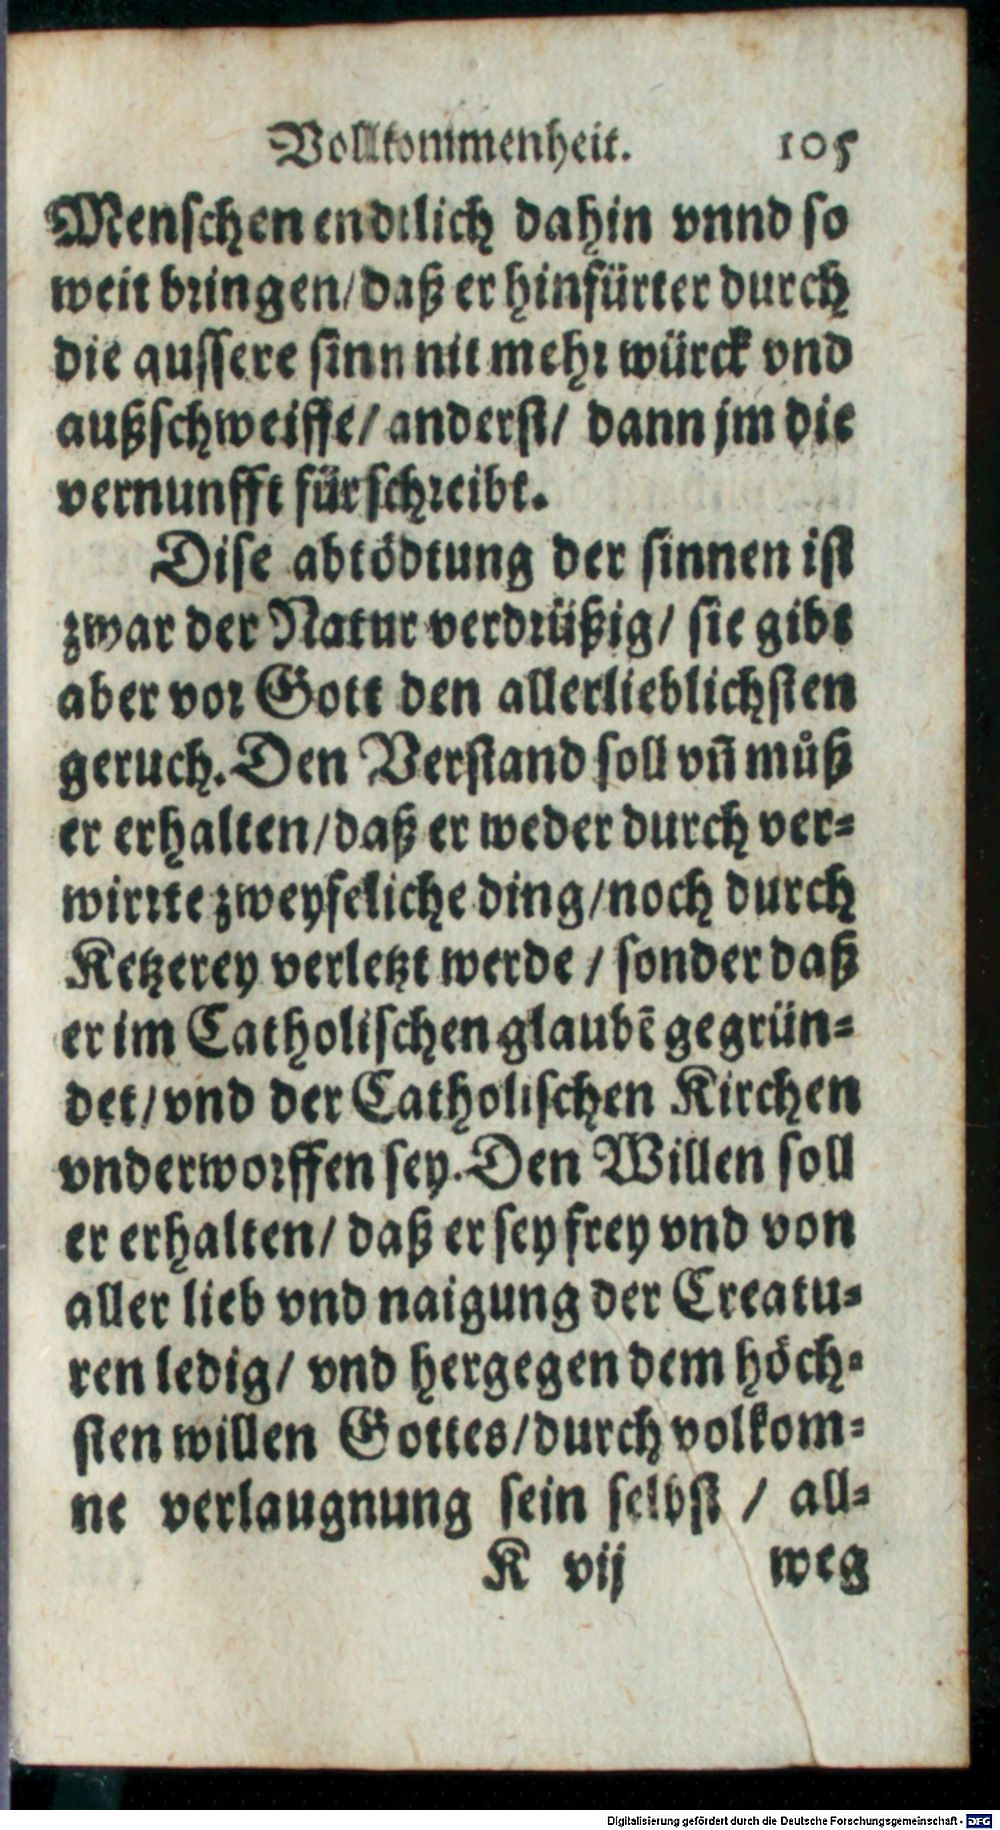 Vollkommenheit. 105
Menschen endtlich dahin vnnd so
weit bringen/daß er hinfürter durch
die aussere sinn nit mehr würck vnd
außschweiffe/ anderst/ dann jm die
vernunfft fürschreibt.
Dise abtödtung der sinnen ist
zwar der Natur verdrüßig/ sie gibt
aber vor Gott den allerlieblichsten
geruch. Den Verstand soll vñ muͦß
er erhalten/daß er weder durch ver-
wirrte zweyfeliche ding/noch durch
Ketzerey verletzt werde / sonder daß
er im Catholischen glaubẽ gegrün-
det/vnd der Catholischen Kirchen
vnderworffen sey. Den Willen soll
er erhalten/ daß er sey frey vnd von
aller lieb vnd naigung der Creatu-
ren ledig/ vnd hergegen dem höch-
sten willen Gottes/durch volkom-
ne verlaugnung sein selbst / all-
K vij weg
Digitalisierung gefördert durch die Deutsche Forschungsgemeinschaft - DFG